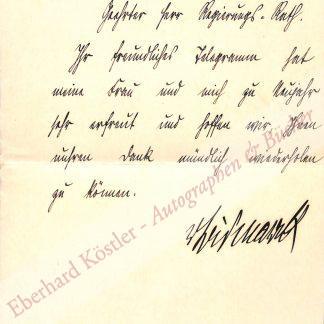 Geehrter Herr Regierungs-Rath.
Ihr freundliches Telegramm hat
meine Frau und mich zu Neujahr
sehr erfreut und hoffen wir Ihnen
unsren Dank mündlich wiederholen
zu können.
vBismarck
Eberhard Köstler - Autographen & Bücher